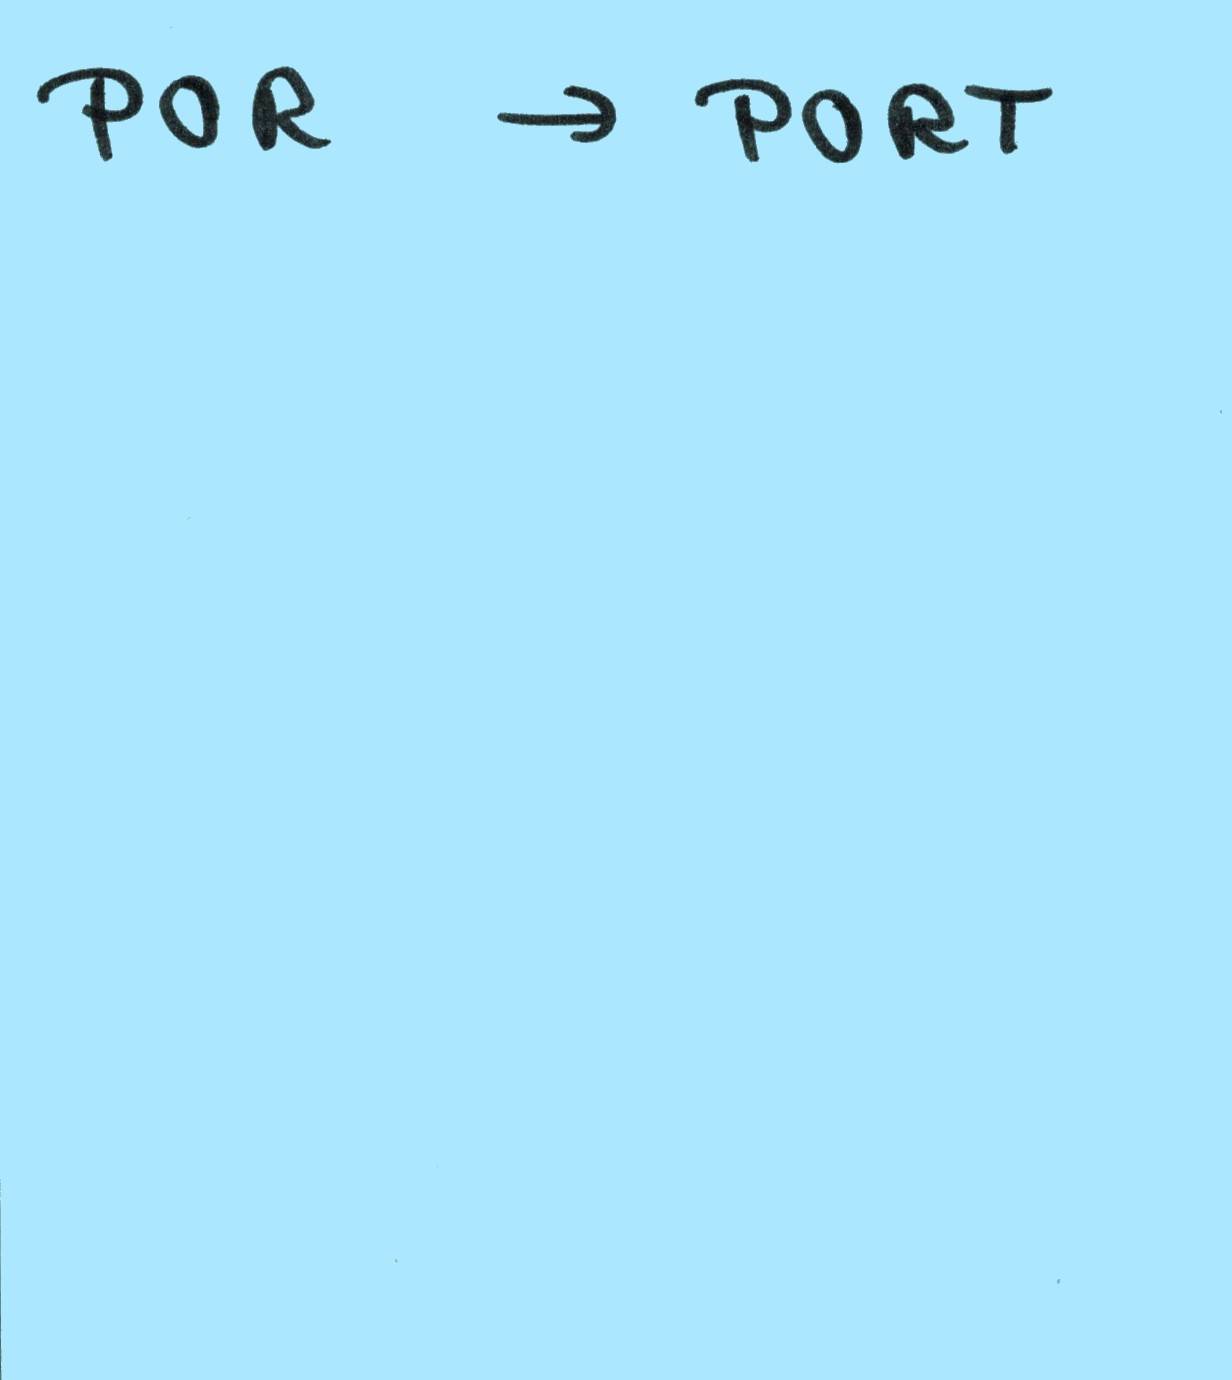 POR → PORT